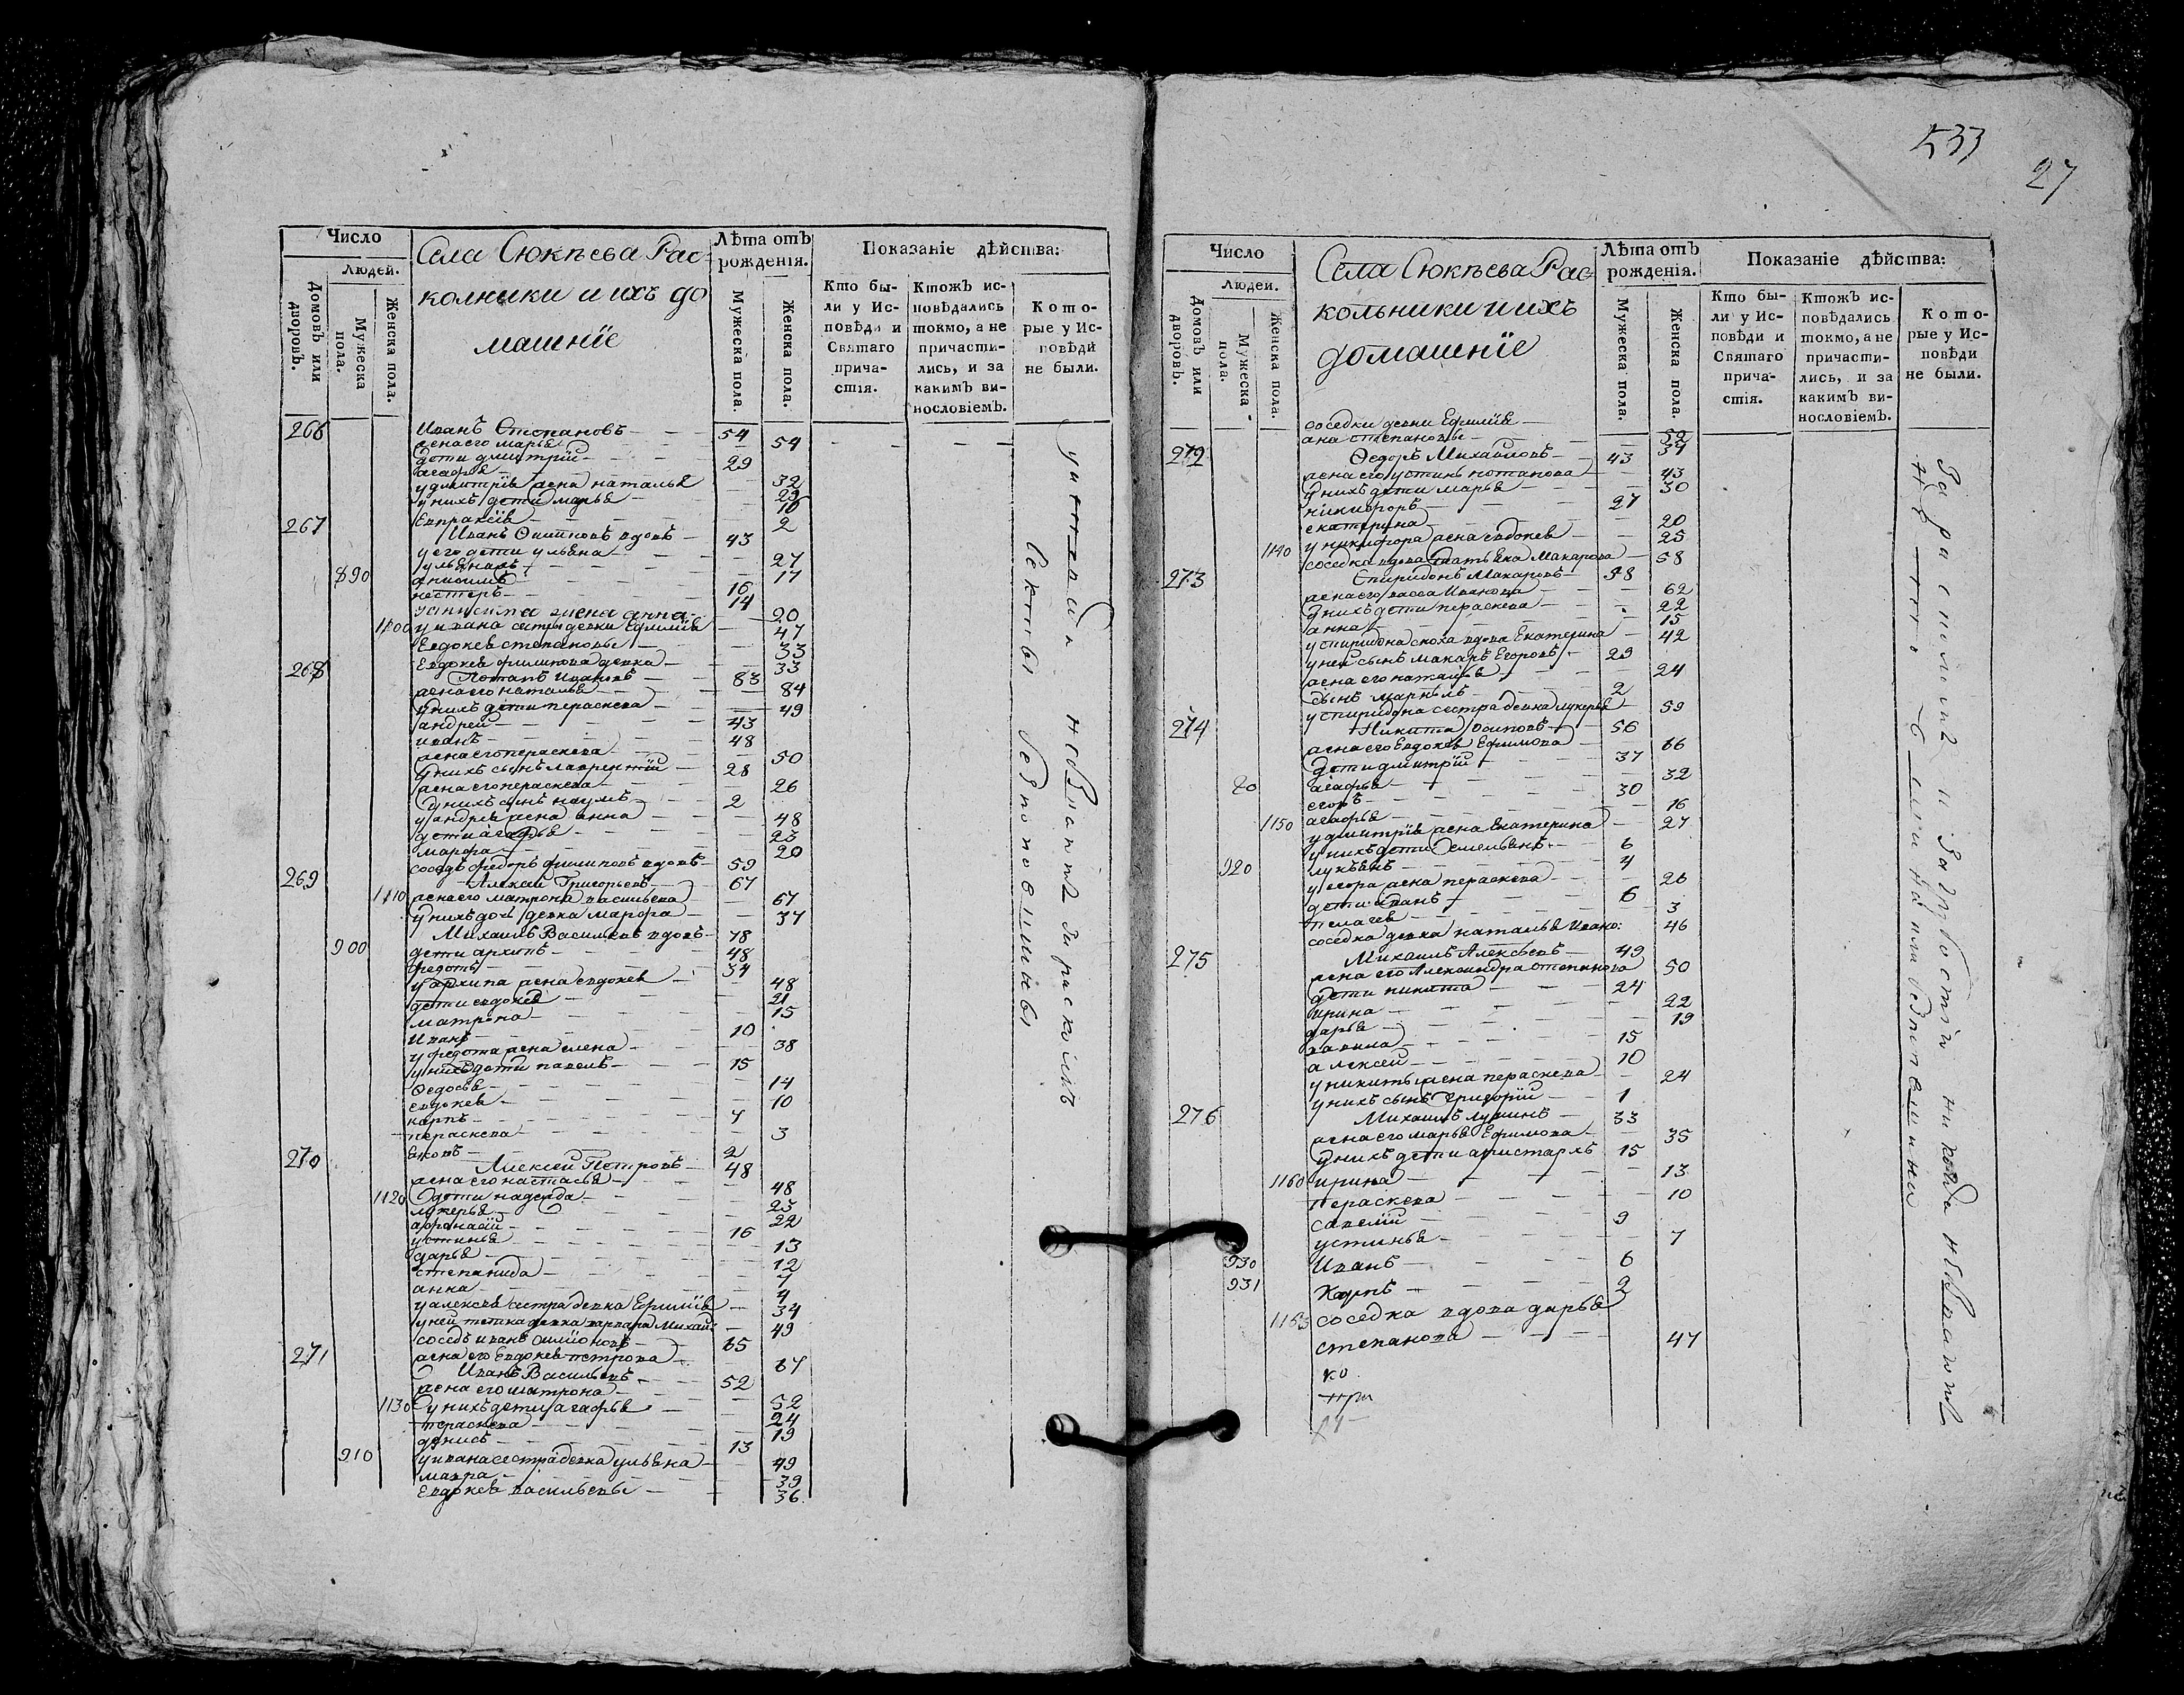 Число
Людей.
Домовъ или дворовъ.
Мужеска пола.
Женска пола.
Села Сюкѣева Рас-
колники и ихъ до
машнїе
Лѣта отъ рожденія.
Мужеска пола.
Женска пола.
Показаніе дѣйства:
Кто бы-
ли у Ис-
повѣди и
Святаго
прича-
стія.
Ктожъ ис-
повѣдались
токмо, а не
причасти-
лись, и за
какимъ ви-
нословіемъ.
Кото-
рые у Ис-
повѣди
не были.
266 Иванъ Степановъ 54
жена его марья 54
дети дмитрїй 29
агафья 32
у дмитрїя жена наталья 29
у нихъ дети марья 10
Евпраксїя 2
267 Иванъ вдовъ 43
у его дети ульяна 27
17
890 16
нестеръ 14
жена анна 20
1100 у ивана сестры девки Ефимїя 47
Евдокея степановы 33
Евдокея филипова девка 33
268 Потапъ Ивановъ 83
жена его наталья 84
у нихъ дети пераскева 49
андрей 43
иванъ 48
жена его пераскева 50
у нихъ сынъ лаврентїй 28
жена его пераскева 26
у нихъ сынъ наумъ 2
у андрея жена анна 48
дети агафья 23
марфа 20
соседъ федоръ филиповъ вдовъ 59
269 Алексей Григорьевъ 67
1110 жена его матрона васильева 67
у нихъ дочь девка марфа 37
Михаилъ Васильевъ вдовъ 78
900 дети архипъ 48
федотъ 34
у архипа жена евдокея 48
дети евдокея 21
матрона 15
Иванъ 10
у федота жена елена 38
у нихъ дети павелъ 15
Федосья 14
евдокея 10
карпъ 7
пераскева 3
Яковъ 2
270 Алексей Петровъ 48
жена его настасья 48
1120 дети надежда 23
лукерья 22
афонасїй 16
устинья 13
дарья 12
степанида 7
анна 4
у алексея сестра девка Ефимїя 34
у ней тетка девка варвара Михай: 49
соседъ иванъ 65
жена его Евдокея петрова 67
271 Иванъ Васильевъ 52
жена его матрона 52
1130 у нихъ дети агафья 24
пераскева 19
910 денисъ 13
у ивана сестра девка ульяна 49
мавра 39
Евдокея васильевы 36
секты беспоповшины
533
27
Число
Людей.
Домовъ или дворовъ.
Мужеска пола.
Женска пола.
Села Сюкѣева Рас-
кольники и ихъ
домашнїе
Лѣта отъ рожденія.
Мужеска пола.
Женска пола.
Показаніе дѣйства:
Кто бы-
ли у Ис-
повѣди и
Святаго
прича-
стія.
Ктожъ ис-
повѣдались
токмо, а не
причасти-
лись, и за
какимъ ви-
нословіемъ.
Кото-
рые у Ис-
повѣди
не были.
соседки девки Ефимїя 52
ана степановы 34
272 Федоръ Михайловъ 43
жена его устинья потапова 43
у нихъ дети марья 30
никифоръ 27
екатерина 20
у никифора жена евдокея 25
1140 соседка вдова Макарова 58
273 Спиридонъ Макаровъ 58
жена его Иванова 62
у нихъ дети пераскева 22
анна 15
у спиридона сноха вдова Екатерина 42
у ней сынъ макаръ Егоровъ 23
жена его наталья 24
сынъ 2
у спиридона сестра девка лукерья 59
274 Никита Осиповъ 56
жена его Евдокея Ефимова 66
дети дмитрїй 37
агафья 32
20 егоръ 30
агафья 16
1150 у дмитрїя жена Екатерина 27
у нихъ дети Емельянъ 6
920 лукьянъ 4
у егора жена пераскева 26
дети иванъ 6
пелагея 3
соседка девка наталья Ивано: 46
275 Михаилъ Алексѣевъ 49
жена его Александра степанова 50
дети никита 24
ирина 22
дарья 19
вавила 15
алексей 10
у никиты жена пераскева 24
у нихъ сынъ Григорїй 1
276 Михаилъ 33
жена его марья Ефимова 35
у нихъ дети аристархъ 15
1160 ирина 13
пераскева 10
савелїй 9
устинья 7
930 Иванъ 6
931 Карпъ 2
1163 соседка вдова дарья
степанова 47
ко